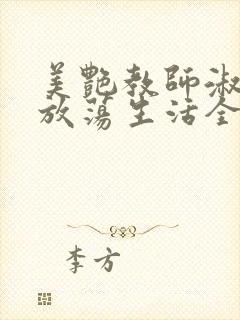 美艷教師淑
放蕩生活全
李方